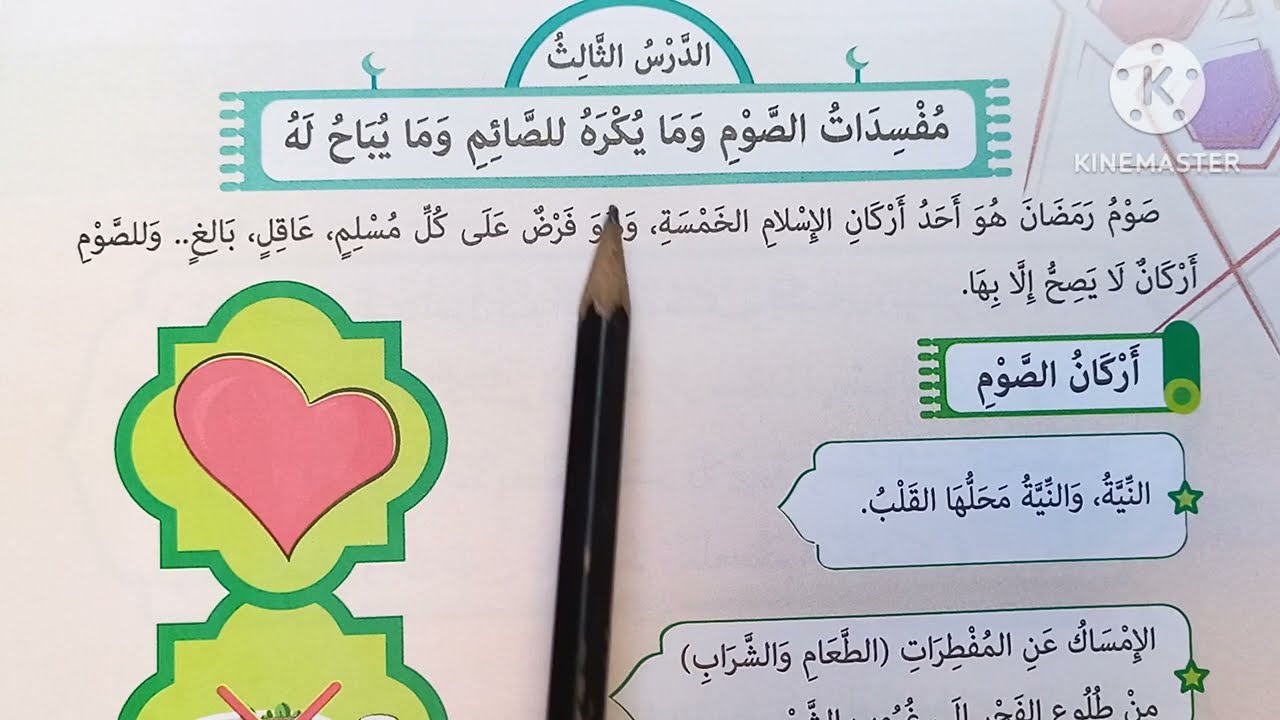 الدَّرْسُ الثَّالِثُ
مُفْسِدَاتُ الصَّوْمِ وَمَا يُكْرَهُ للصَّائِمِ وَمَا يُبَاحُ لَهُ
KINEMASTER
صَوْمُ رَمَضَانَ هُوَ أَحَدُ أَرْكَانِ الإِسْلامِ الخَمْسَةِ، وَهُوَ فَرْضٌ عَلَى كُلِّ مُسْلِمٍ، عَاقِلٍ، بَالِغٍ.. وَللصَّوْمِ
أَرْكَانٌ لَا يَصِحُّ إِلَّا بِهَا.
أَرْكَانُ الصَّوْمِ
النِّيَّةُ، وَالنِّيَّةُ مَحَلُّهَا القَلْبُ.
الإِمْسَاكُ عَنِ المُفْطِرَاتِ (الطَّعَامِ وَالشَّرَابِ)
مِنْ طُلُوعِ الفَجْرِ إِلَى غُرُوبِ